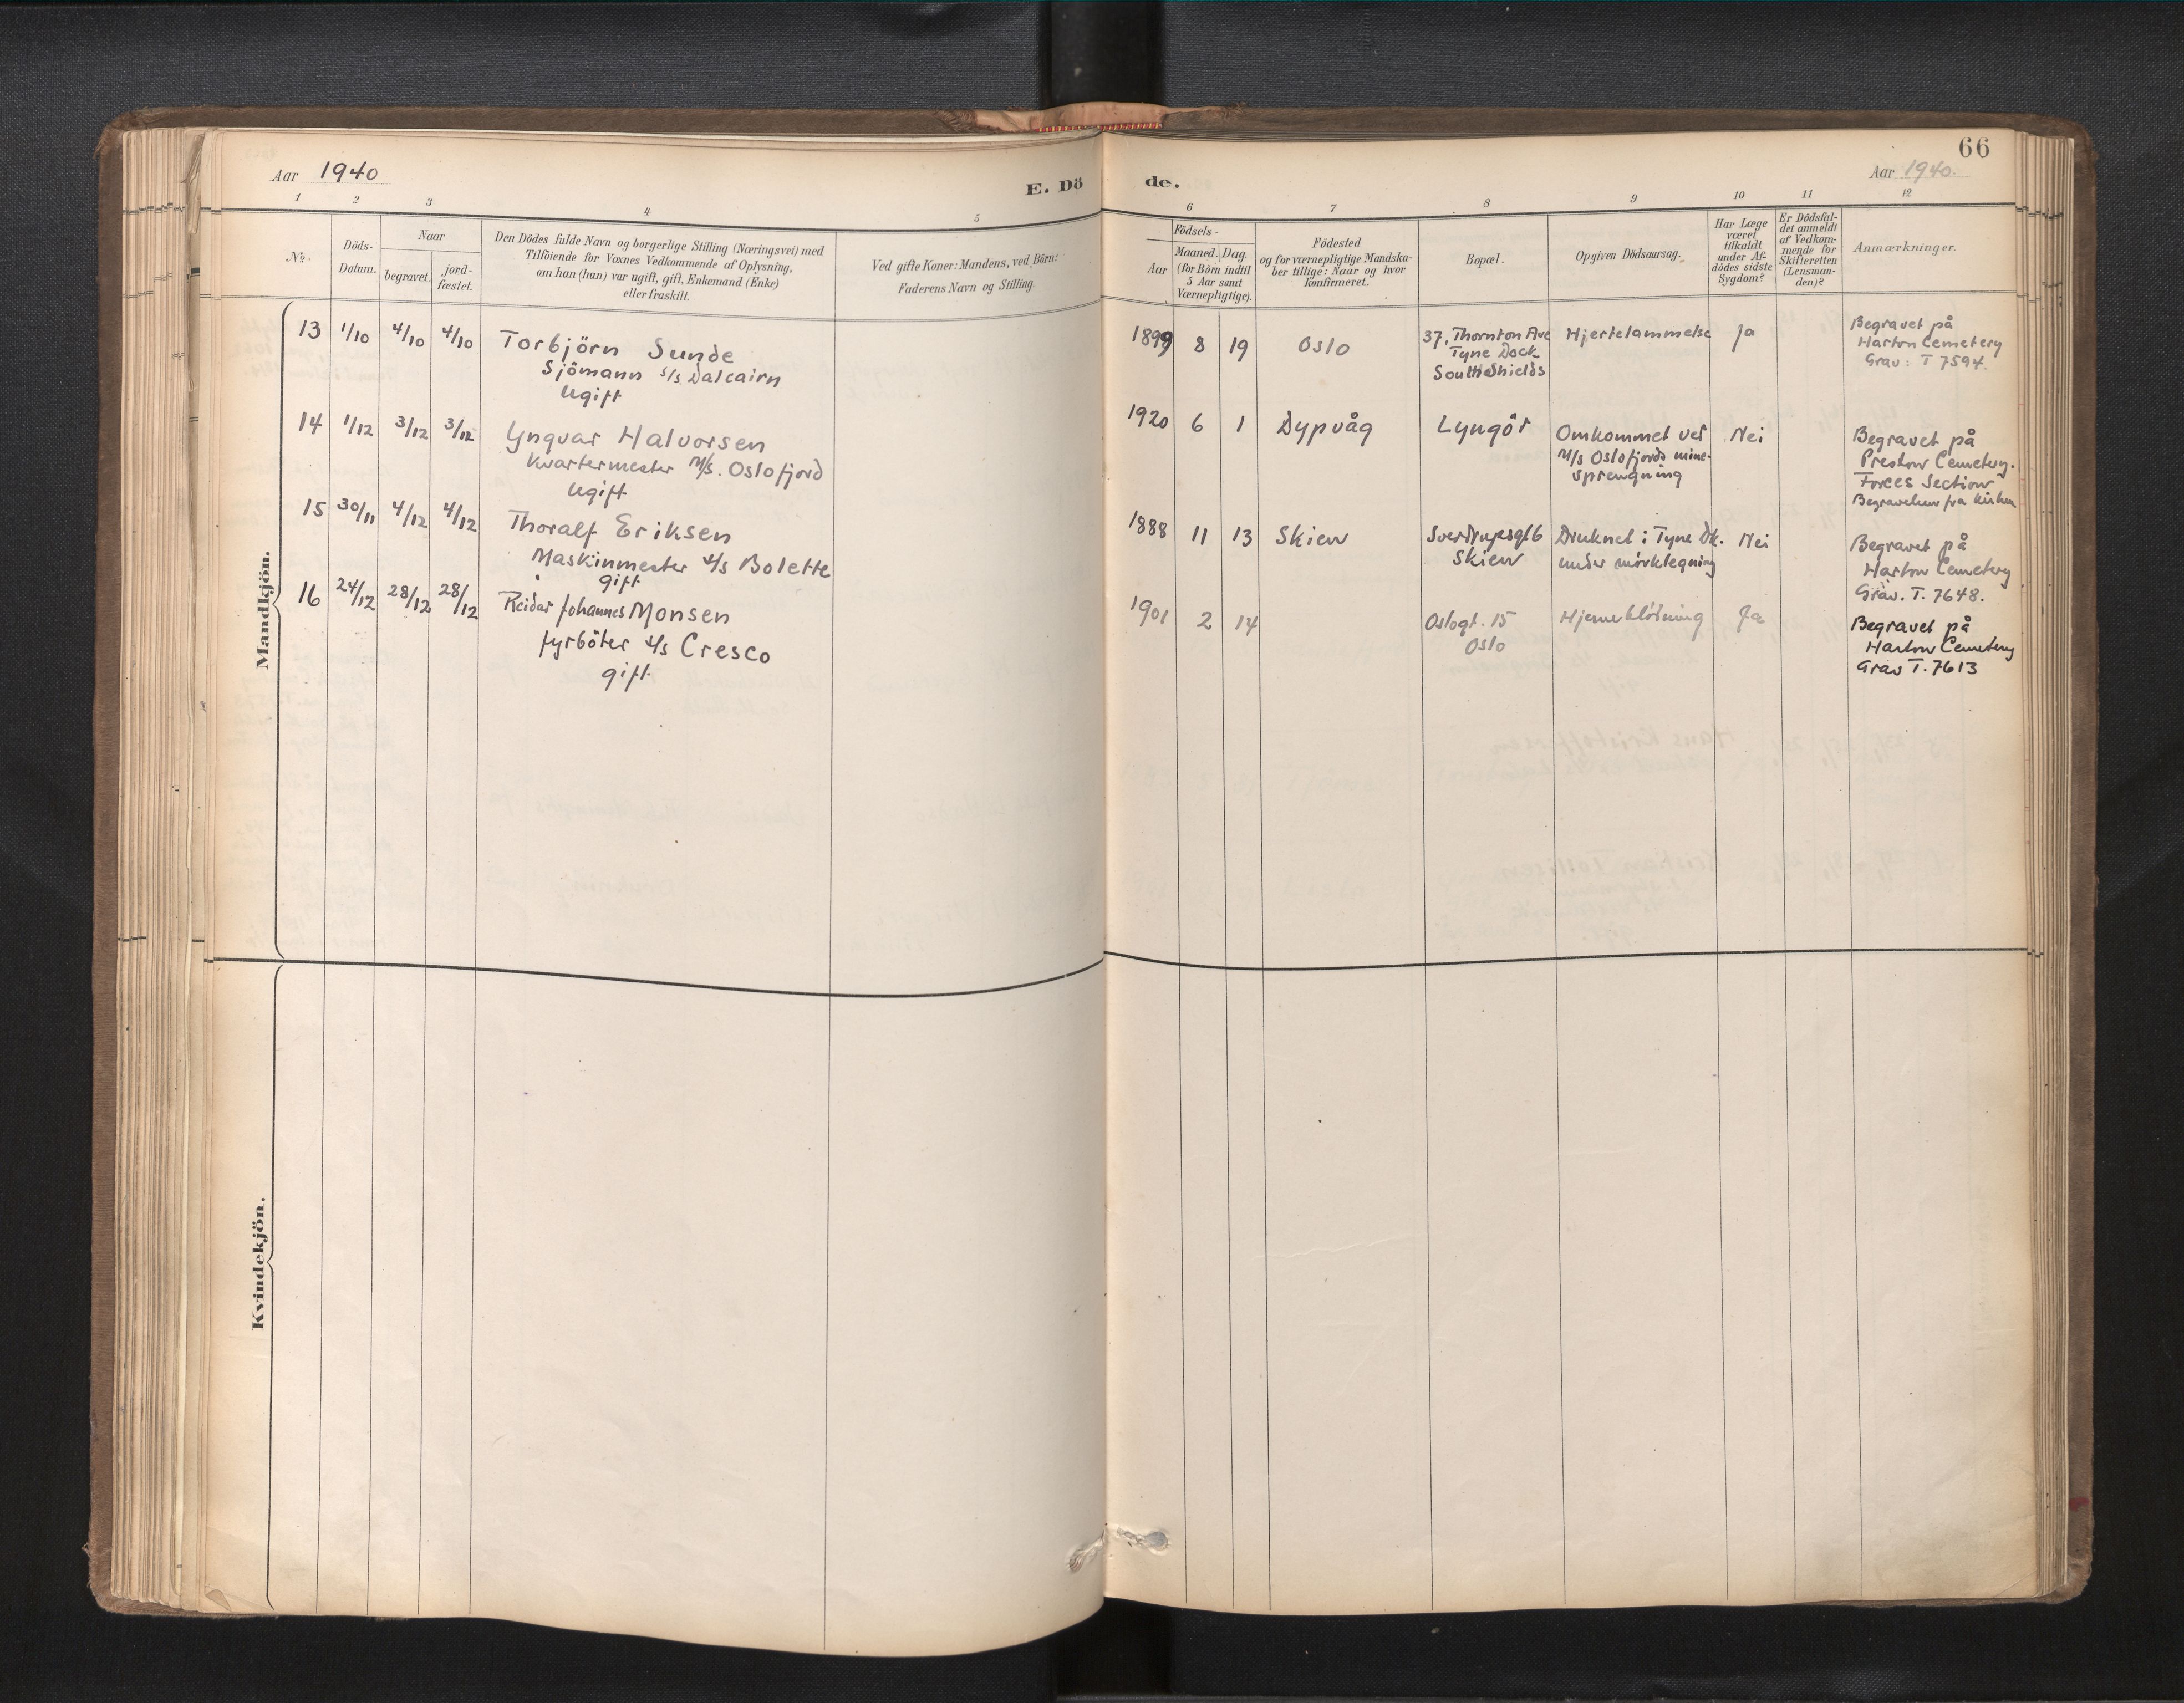 66
Aar 1940
E. Dö
de.
Aar 1940.
1 2 3 4 5 6 7 8 9 10 11 12
No.
Döds-
Datum.
Naar
begravet.
jord-
fæstet.
Den Dödes fulde Navn og borgerlige Stilling (Næringsvei) med
Tilföiende for Voxnes Vedkommende af Oplysning,
om han (hun) var ugift, gift, Enkemand (Enke)
eller fraskilt.
Ved gifte Koner: Mandens, ved Börn:
Faderens Navn og Stilling.
Födsels-
Aar
Maaned. Dag.
(for Börn indtil
5 Aar samt
Værnepligtige).
Födested
og for værnepligtige Mandska-
ber tillige: Naar og hvor
konfirmeret.
Bopæl.
Opgiven Dödsaarsag.
Har Læge
været
tilkaldt
under Af-
dödes sidste
Sygdom?
Er Dödsfal-
det anmeldt
af Vedkom-
mende for
Skifteretten
(Lensman-
den)?
Anmærkninger.
Mandkjön.
13 1/10 4/10 4/10 Torbjörn Sunde
Sjömann s/s Dalcairn
Ugift
1899 8 19 Oslo
37, Thornton Ave
Tyne Dock
South Shields
Hjertelammelse
Ja
Begravet på
Harton Cemetery
Grav: T 7594.
14 1/12 3/12 3/12 Yngvar Halvorsen
Kvartermester M/s. Oslofjord
Ugift
1920 6 1 Dypvåg
Lyngör
Omkommet ved
M/s Oslofjords mine-
sprengning
Nei
Begravet på
Preston Cemetery.
Forces Section
Begravelsen fra kirken
15 30/11 4/12 4/12 Thoralf Eriksen
Maskinmester s/s Bolette
gift
1888 11 13 Skien
Sverdrupsgt 6
Skien
Druknet i Tyne Dk.
under mörklegning
Nei
Begravet på
Harton Cemetery
Grav. T. 7648.
16 24/12 28/12 28/12 Reidar Johannes Monsen
fyrböter s/s Cresco
gift
1901 2 14
Oslogt. 15
Oslo
Hjerneblödning
Ja
Begravet på
Harton Cemetery
Grav T. 7613
Kvindekjön.